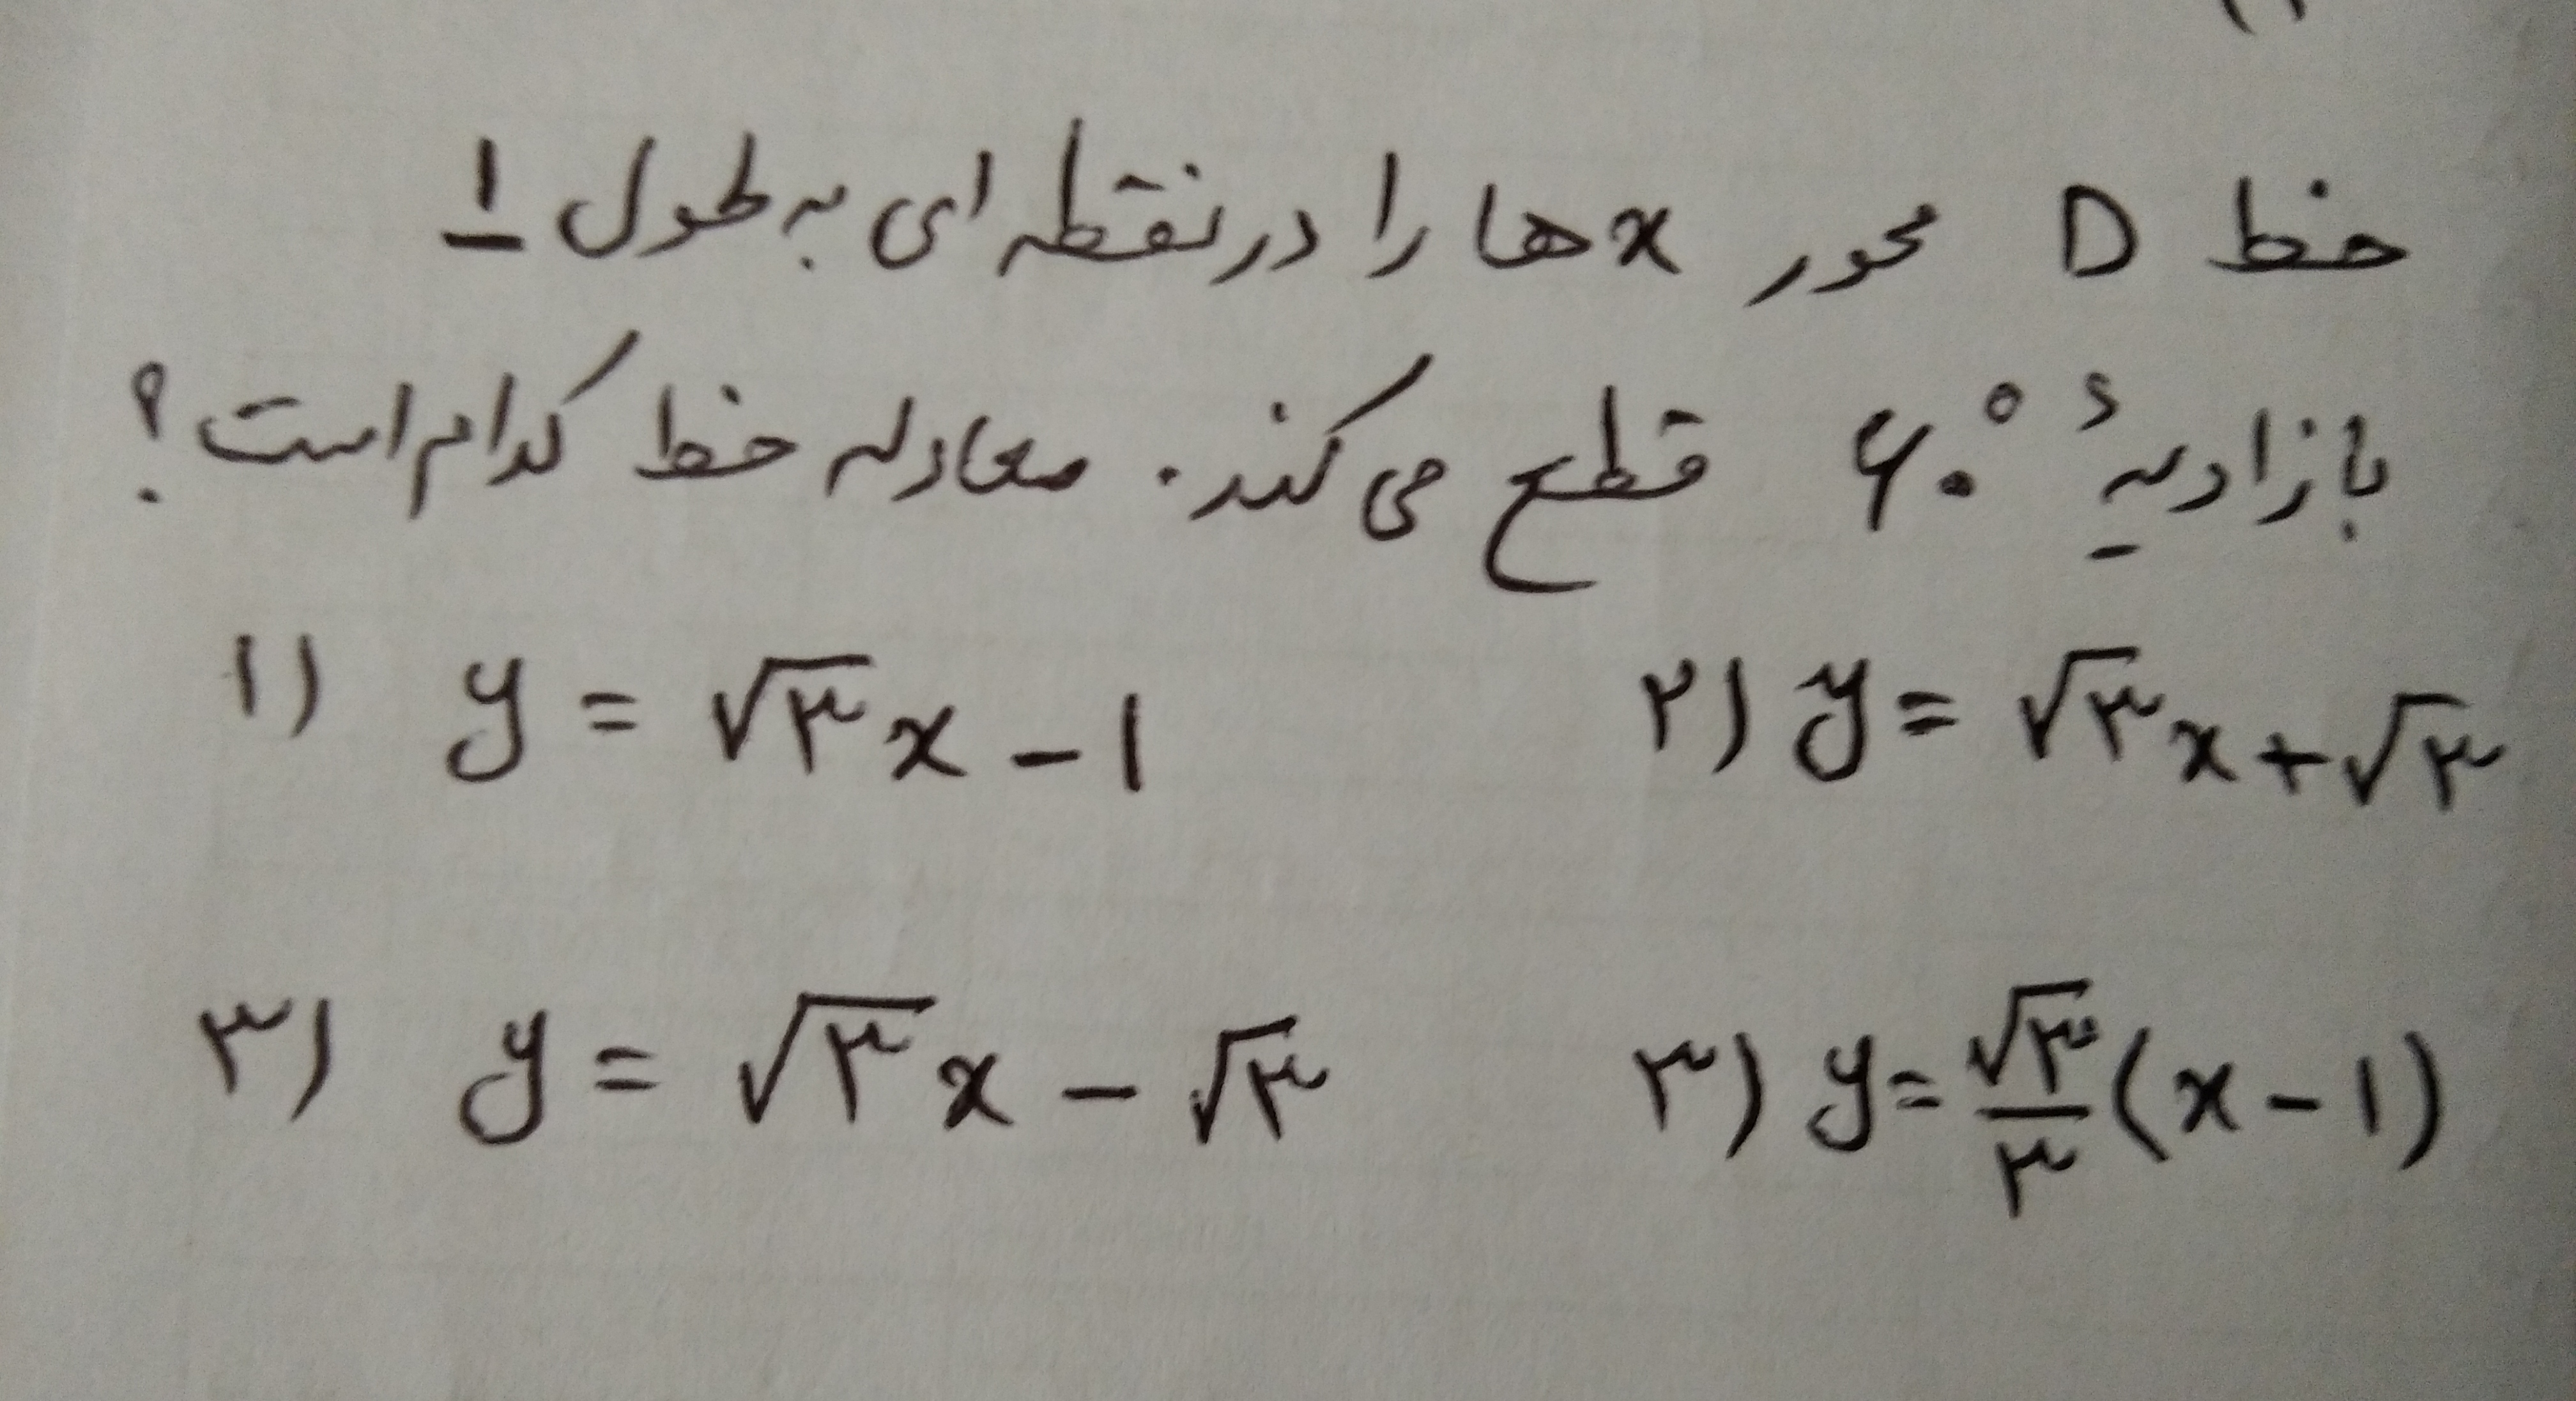 خط D محور xها را در نقطه ای به طول ۱
با زاویهٔ ۶۰° قطع می کند. معادله خط کدام است؟
۱) y = √۳x - ۱ ۲) y = √۳x + √۳
۳) y = √۳x - √۳ ۳) y = √۳/۳ (x - ۱)